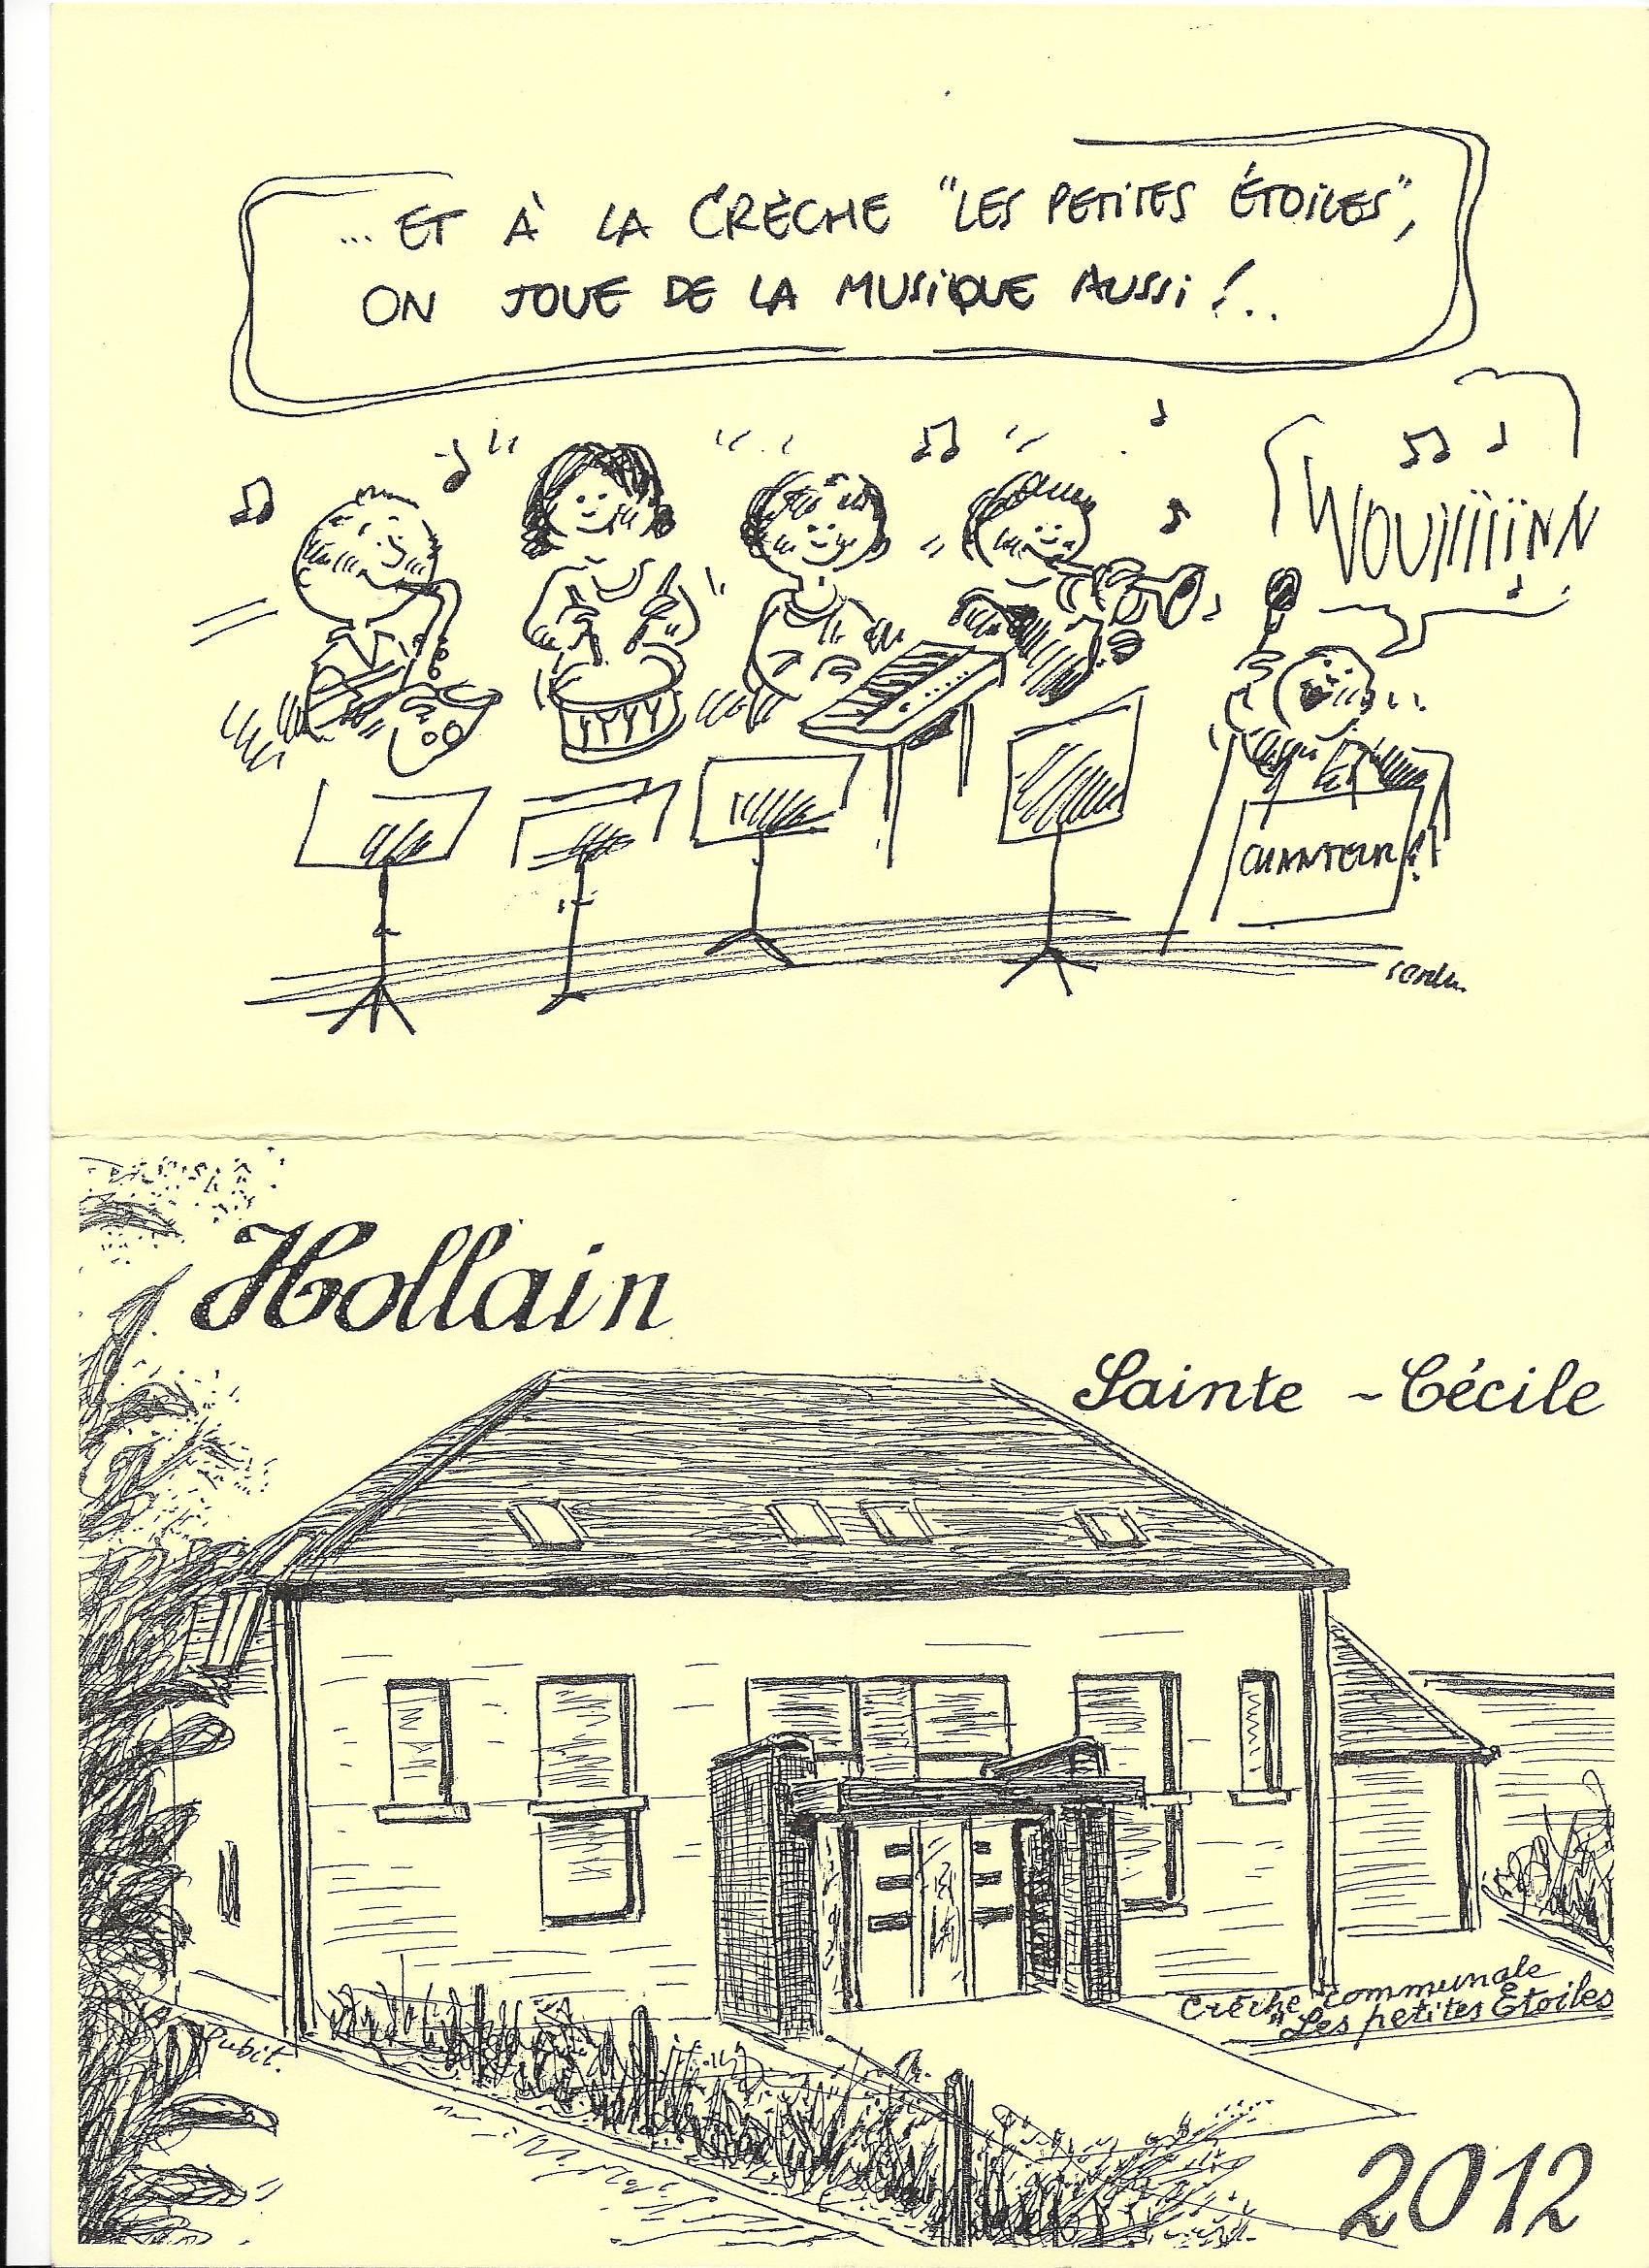 ... ET À LA CRÈCHE "LES PETITES ÉTOILES",
ON JOUE DE LA MUSIQUE AUSSI !..
WOUIIIIINN
CHANTEUR !
Hollain
Sainte - Cécile
Crèche communale
"Les petites Etoiles
2012